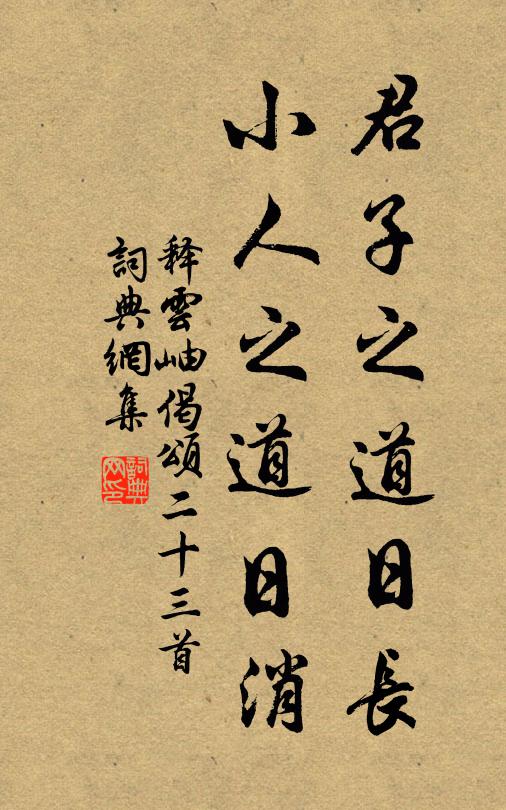 君子之道日長
小人之道日消
释雲岫偈頌二十三首
詞典網集
詞典网印